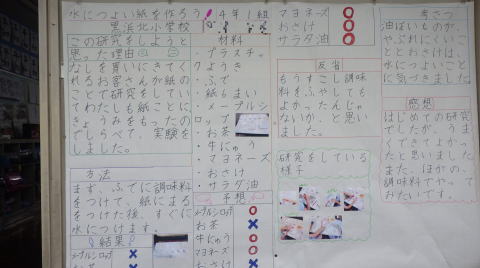 水につよい紙を作ろう!
4年1組
黒浜北小学校
この研究をしようと
思った理由
なしを買いにきてく
れるお客さんが紙の
ことで研究をしてい
てわたしも紙ことに
きょうみをもったの
でしらべて、実験を
しました。
方法
まず、ふでに調味料
をつけて、紙にまる
をつけた後、すぐに
水につけます。
結果
メープルシロップ ×
お茶 ×
材料
・プラスチッ
クようき
・ふで
・紙
・メープルシ
ロップ
・お茶
・牛にゅう
・マヨネーズ
・おさけ
・サラダ油
予想
メープルシロップ ○
お茶 ×
牛にゅう ○
マヨネーズ ○
おさけ ×
マヨネーズ ○
おさけ ○
サラダ油 ○
反省
もうすこし調味
料をふやしても
よかったんじゃ
ないか、と思い
ました。
研究をしている
様子
考さつ
油ぽいものが
やぶれにくいこ
ととおさけは、
水につよいこと
に気づきました。
感想
はじめての研究
でしたが、うま
くできてよかっ
たと思いました。
また、ほかの、
調味料でやって
みたいです。